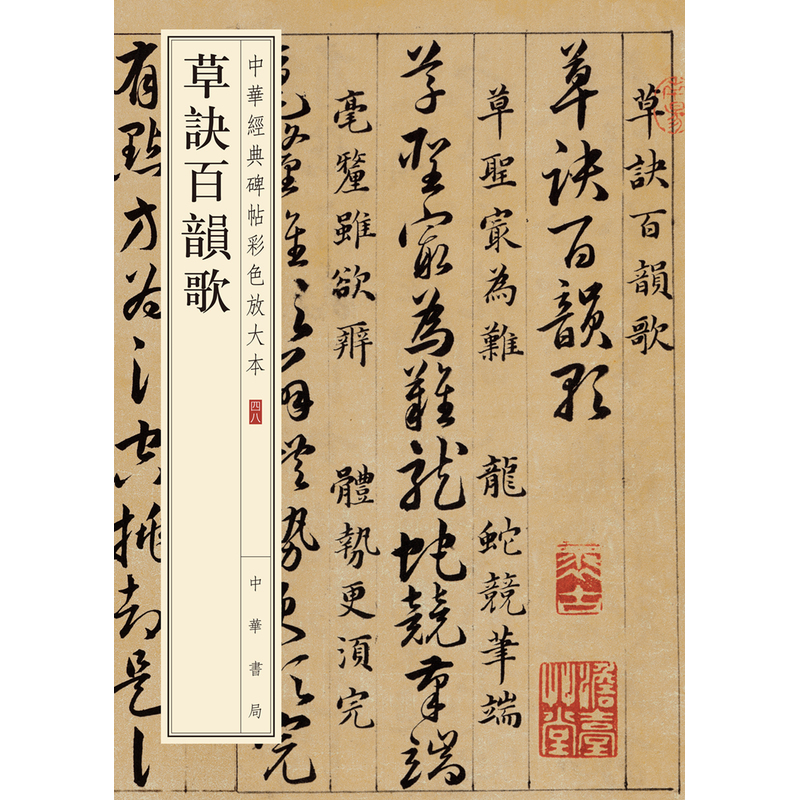 草訣百韻歌
草訣百韻歌
草聖㝡為難 龍蛇競筆端
草聖㝡為難龍蛇競筆端
毫釐雖欲辨 體勢更須完
毫釐雖欲辨體勢更須完
中華經典碑帖彩色放大本
四八
中華書局
草訣百韻歌
有點方為氵空挑却是讠